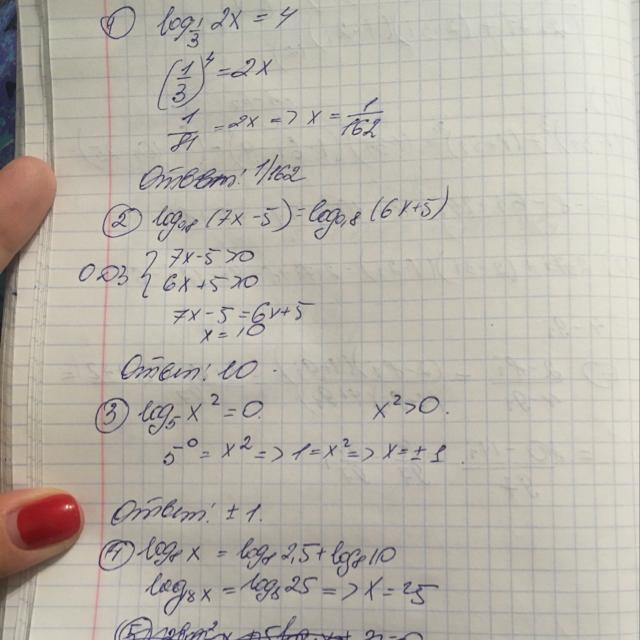 ① log_{1/3} 2x = 4
(1/3)^4 = 2x
1/81 = 2x => x = 1/162
Ответ: 1/162
② log_{0,8} (7x-5) = log_{0,8} (6x+5)
ОДЗ { 7x-5>0
6x+5>0
7x-5=6x+5
x=10
Ответ: 10.
③ log_5 x^2 = 0. x^2>0.
5^0 = x^2 => 1=x^2 => x=±1.
Ответ: ±1.
④ log_8 x = log_8 2,5 + log_8 10
log_8 x = log_8 25 => x=25
⑤